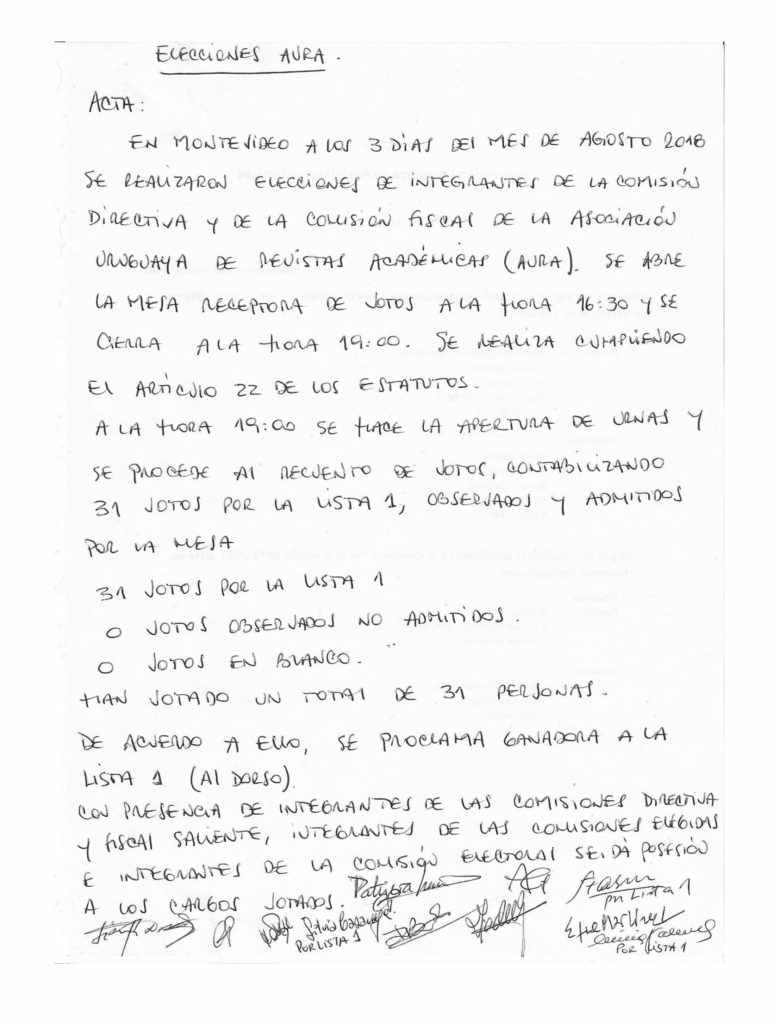 ELECCIONES AURA.
ACTA:
EN MONTEVIDEO A LOS 3 DÍAS DEL MES DE AGOSTO 2018
SE REALIZARON ELECCIONES DE INTEGRANTES DE LA COMISIÓN
DIRECTIVA Y DE LA COMISIÓN FISCAL DE LA ASOCIACIÓN
URUGUAYA DE REVISTAS ACADÉMICAS (AURA). SE ABRE
LA MESA RECEPTORA DE VOTOS A LA HORA 16:30 Y SE
CIERRA A LA HORA 19:00. SE REALIZA CUMPLIENDO
EL ARTÍCULO 22 DE LOS ESTATUTOS.
A LA HORA 19:00 SE HACE LA APERTURA DE URNAS Y
SE PROCEDE AL RECUENTO DE VOTOS, CONTABILIZANDO
31 VOTOS POR LA LISTA 1, OBSERVADOS Y ADMITIDOS
POR LA MESA
31 VOTOS POR LA LISTA 1
0 VOTOS OBSERVADOS NO ADMITIDOS.
0 VOTOS EN BLANCO.
HAN VOTADO UN TOTAL DE 31 PERSONAS.
DE ACUERDO A ELLO, SE PROCLAMA GANADORA A LA
LISTA 1 (AL DORSO).
CON PRESENCIA DE INTEGRANTES DE LAS COMISIONES DIRECTIVA
Y FISCAL SALIENTE, INTEGRANTES DE LAS COMISIONES ELEGIDAS
E INTEGRANTES DE LA COMISIÓN ELECTORAL SE DA POSESIÓN
A LOS CARGOS VOTADOS.
Lista 1
Silvia
POR LISTA 1
POR LISTA 1